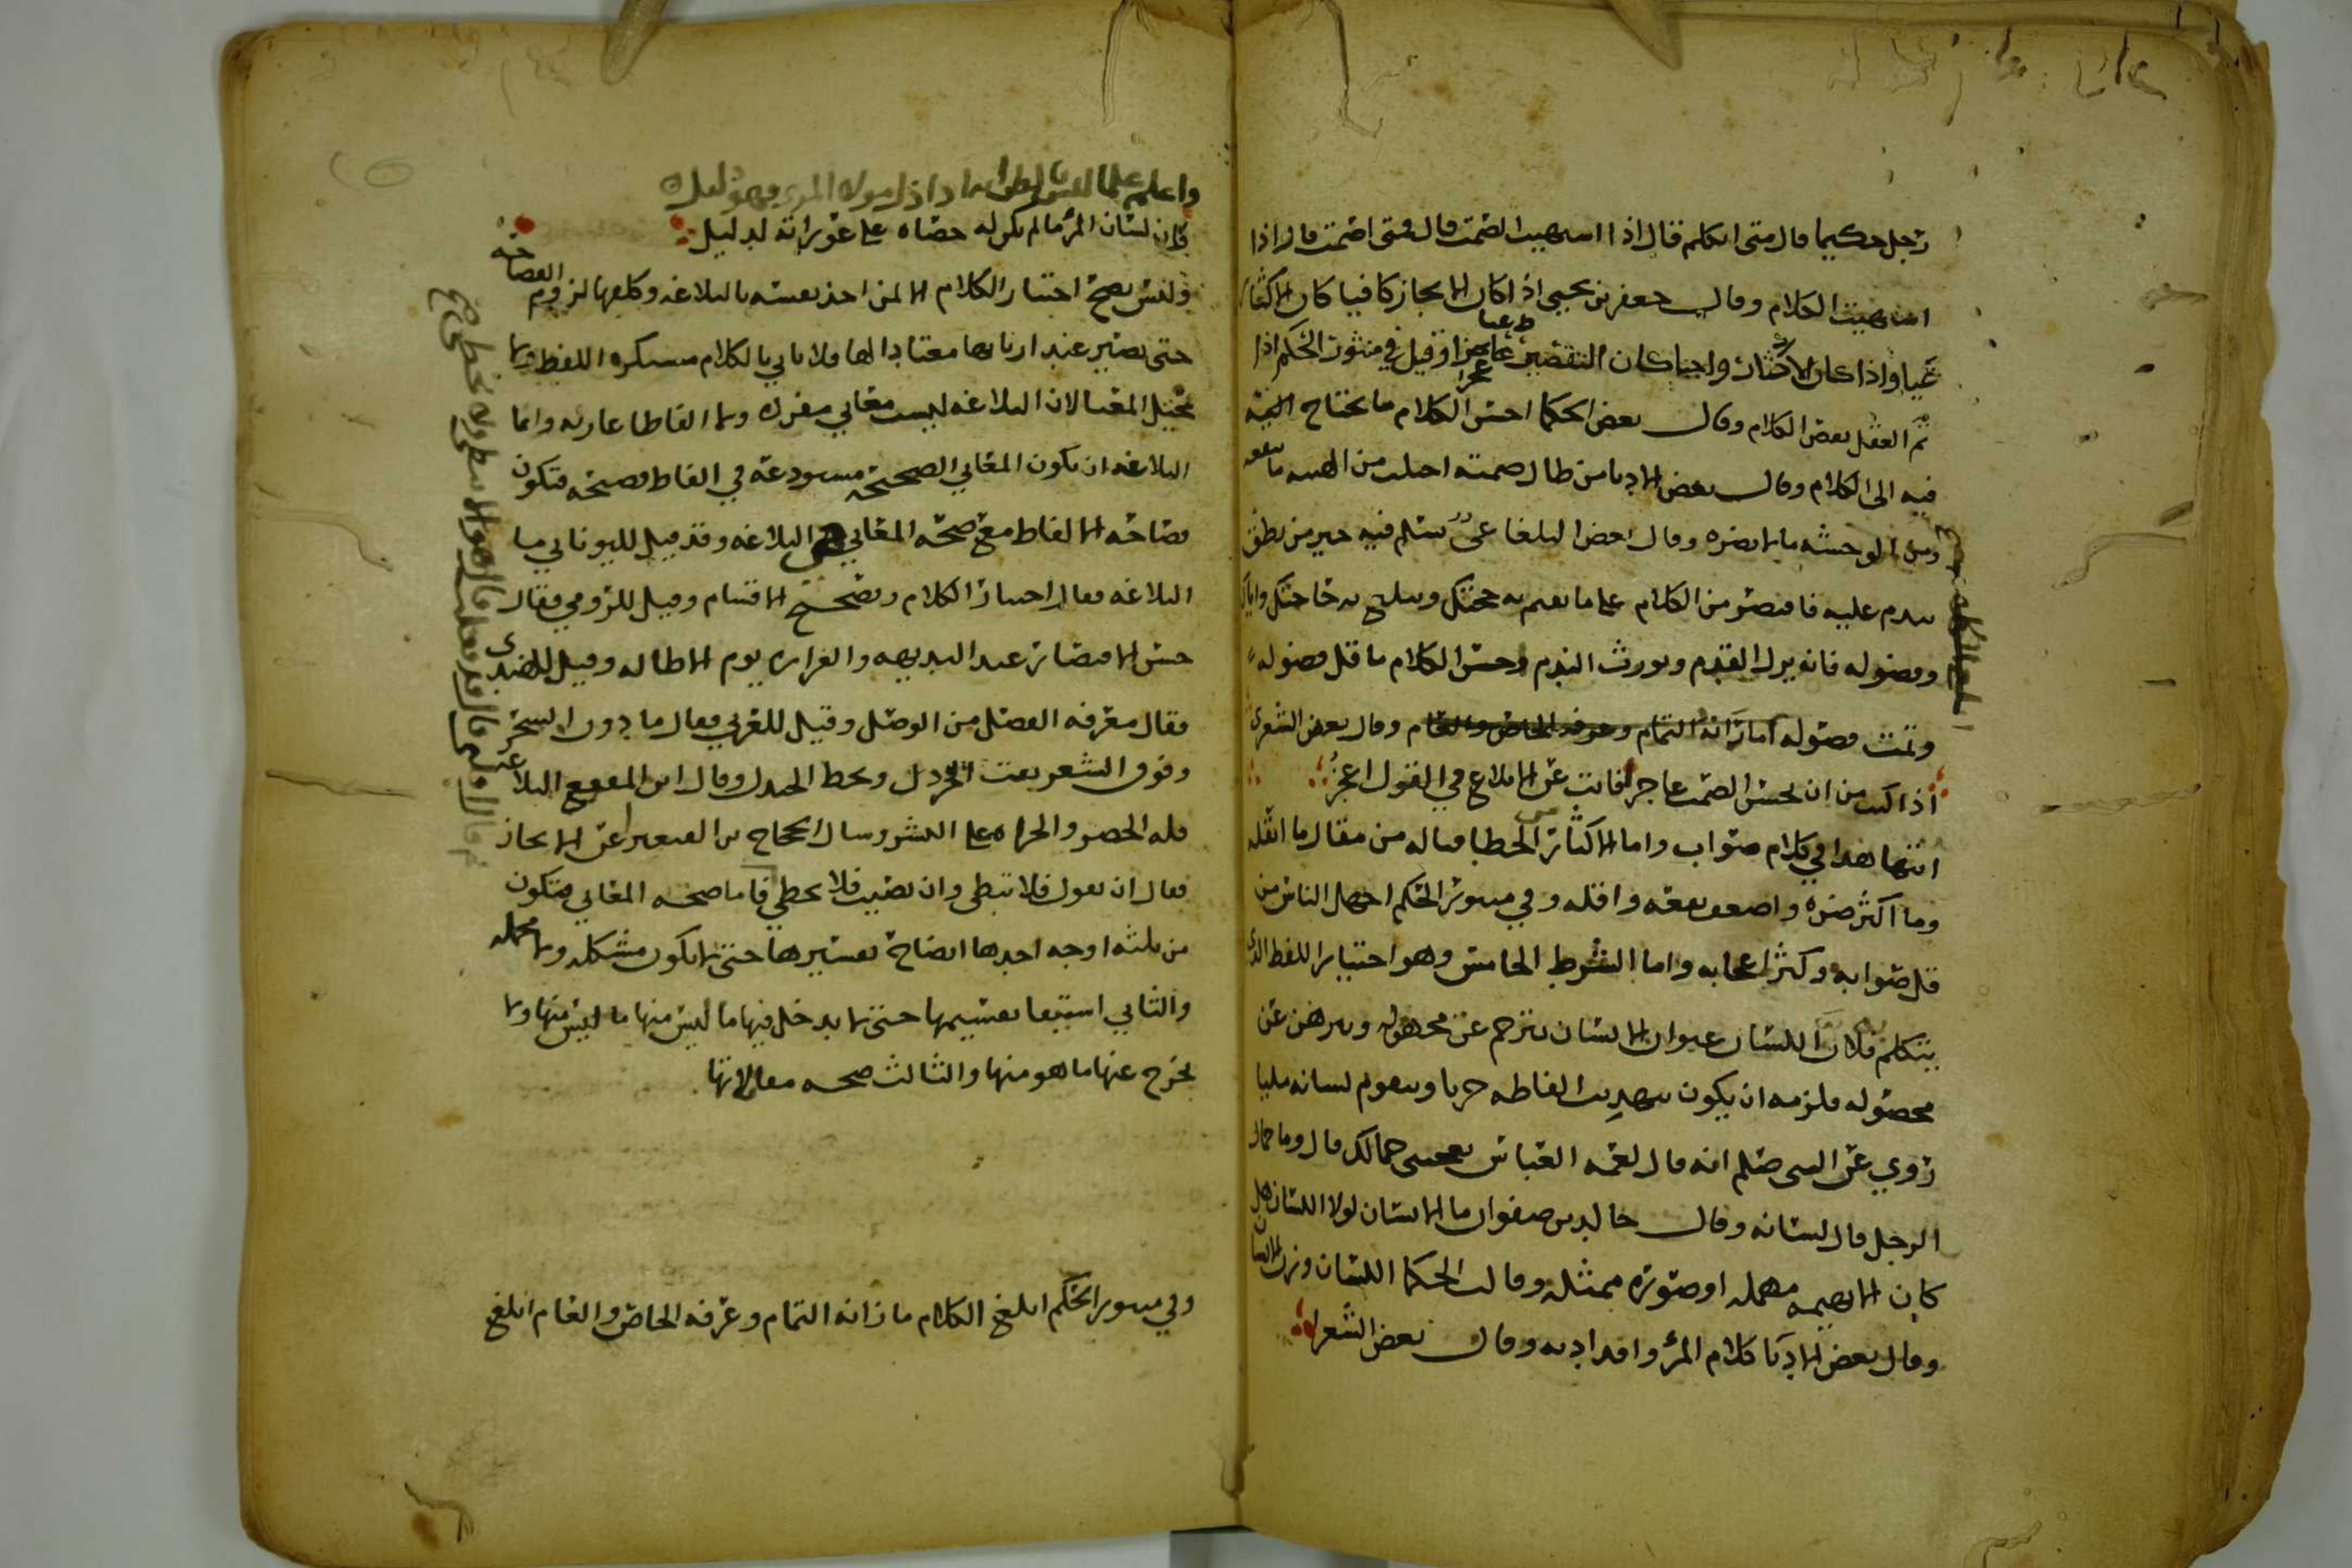 رجل حكيما قال متى اتكلم قال اذا اشتهيت الصمت قال فمتى اصمت قال اذا
اشتهيت الكلام وقال جعفر بن يحيى اذا كان الايجاز كافيا كان الاكثار
عيا واذا كان الاكثار واجبا كان التقصير عجزا وقيل في منثور الحكم اذا
تم العقل نقص الكلام وقال بعض الحكما احسن الكلام ما يحتاج
فيه الى الكلام وقال بعض الادبا من طال صمته اجتلب من الهيبه ما ينفعه
ومن الوحشه ما لا يضره وقال بعض البلغا عيٌّ تسلم فيه خير من نطق
تندم عليه فاقتصر من الكلام على ما يقيم به حجتك ويبلغ به حاجتك واياك
وفضوله فانه يزل القدم ويورث الندم وحسن الكلام ما قل فضوله
وقال بعض الشعرى
اذا كنت من ان تحسن الصمت عاجزا فانت عن الابلاغ في القول اعجز
في كلام صواب واما الاكثار من مقال ما اقله
وما اكثر ضره واضعف نفعه واقله وفي منثور الحكم اجهل الناس من
قل صوابه وكثر اعجابه واما الشرط الخامس وهو اختيار اللفظ الذي
يتكلم به فلان اللسان عنوان الانسان يترجم عن مجهوله ويبرهن عن
محصوله فلزمه ان يكون بتهذيب الفاظه حريا وبتقويم لسانه مليا
روي عن النبي صلعم انه قال لعمه العباس يعجبني جمالك قال وما جمال
الرجل قال لسانه وقال خالد بن صفوان ما الانسان لولا اللسان هل
كان الا بهيمه مهمله او صوره ممثله وقالت الحكما اللسان وزير الانسان
وقال بعض الادبا كلام المرؤ وافد ادبه وقال بعض الشعرا
فان لسان المرء ما لم يكن له حصاه على عوراته لدليل
وليس يصح اختيار الكلام الا لمن اخذ نفسه بالبلاغه وكلفها لزوم الفصاحه
حتى يصير عند اربابها معتادا لها فلا ياتي بالكلام مستكره اللفظ ولا
مختل المعنى لان البلاغه ليست معاني مفرده ولا الفاظا عاريه وانما
البلاغه ان تكون المعاني الصحيحه مستودعة في الفاظ فصيحه فتكون
فصاحة الالفاظ مع صحة المعاني هي البلاغه وقد قيل لليوناني ما
البلاغه فقال اختيار الكلام وتصحيح الاقسام وقيل للرومي فقال
حسن الاقتصار عند البديهه والغزاره يوم الاطاله وقيل للهندي
فقال معرفه الفصل من الوصل وقيل للعربي فقال ما دون السحر
وفوق الشعر يفت الخردل ويحط الجندل وقال ابن المقفع البلاغه
قله الحصر والجراه على البشر وسال الحجاج عن الايجاز
فقال ان تقول فلا تبطي وان تصيب فلا تخطي فاما صحه المعاني فتكون
من ثلثه اوجه احدها ايضاح تفسيرها حتى لا تكون مشكله ولا مجمله
والثاني استيفا تقسيمها حتى لا يدخل فيها ما ليس منها ولا
يخرج عنها ما هو منها والثالث صحه مقابلاتها
وفي منثور الحكم ابلغ الكلام ما زانه التمام وعرفه الخاص والعام ابلغ